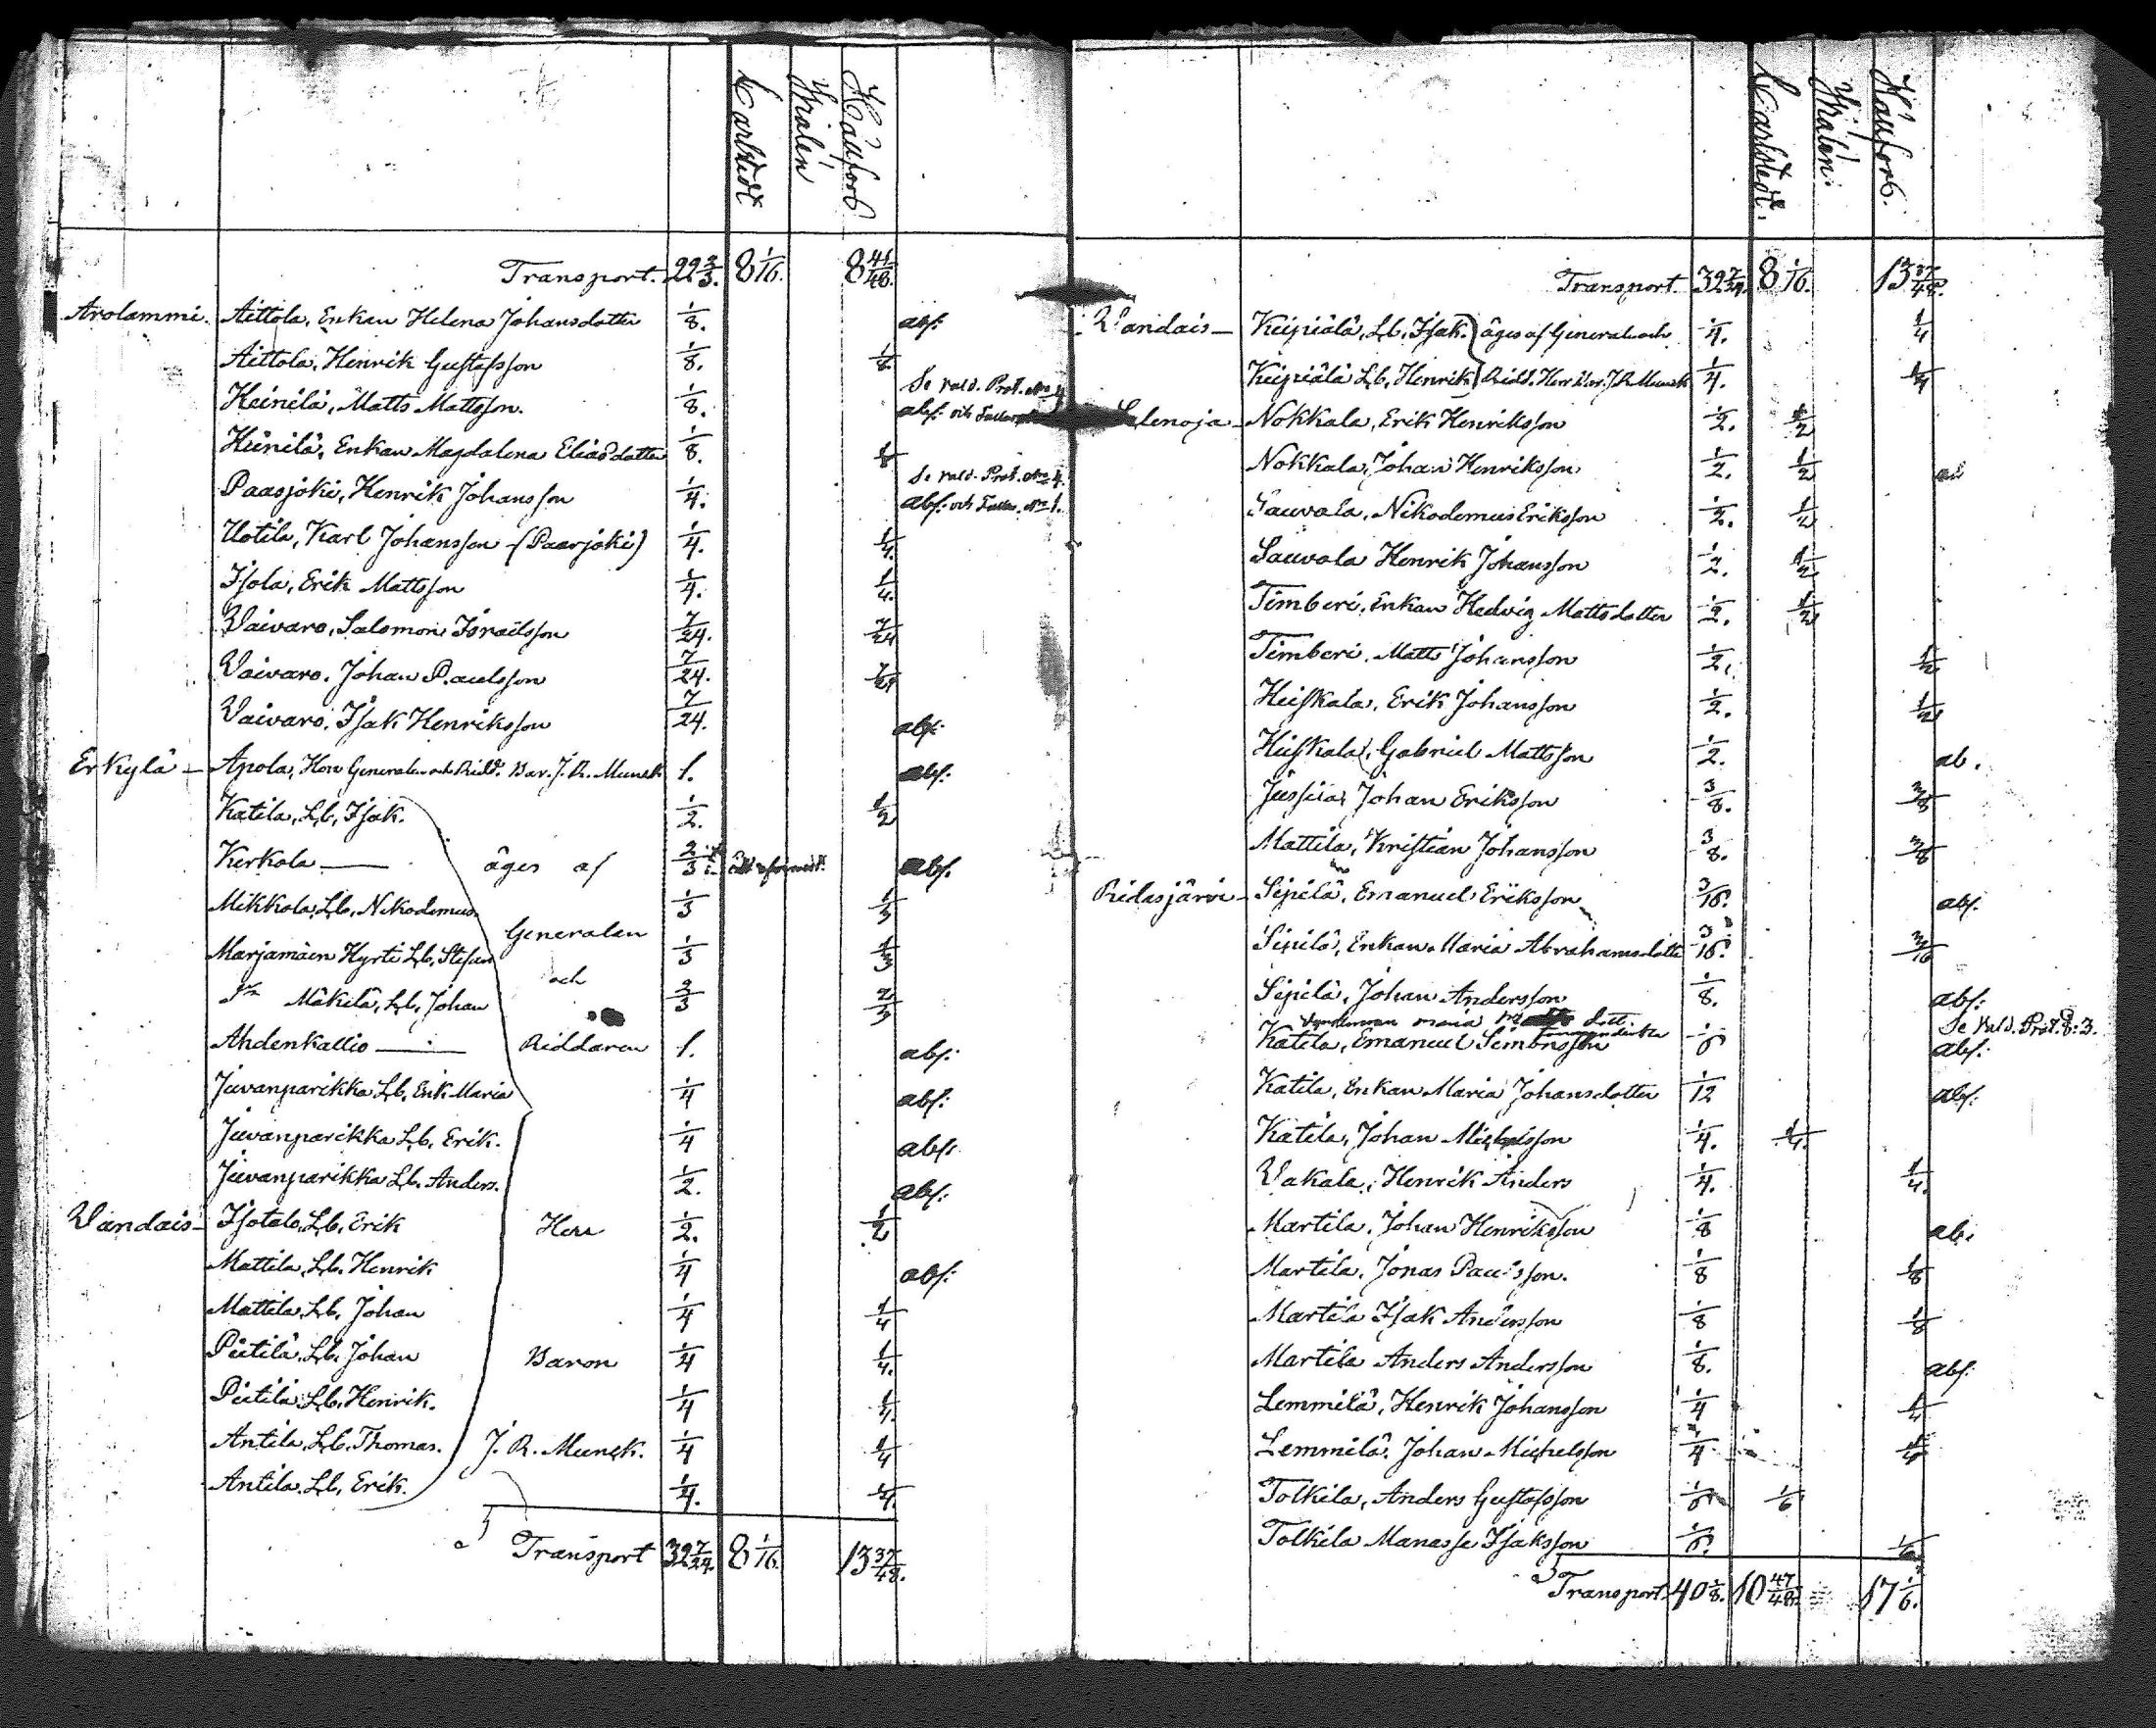 Carlstedt Ihralén Håhfors
Transport. 22 2/3. 8 1/16. 8 41/48.
Arolammi. Aittola, Enkan Helena Johansdotter 1/8. abs:
Aittola, Henrik Gustafsson 1/8. 1/8
Se vald. Prot. No 4
Heinilä, Matts Mattsson. 1/8. abs: och
Heinilä, Enkan Magdalena Eliasdotter 1/8. 1/8
Se vald. Prot. No 4.
Paasjoki, Henrik Johansson 1/4. abs: och No 1.
Uotila, Karl Johansson (Paasjoki) 1/4. 1/4.
Isola, Erik Mattsson 1/4. 1/4.
Waivaro, Salomon Israëlsson 7/24. 7/24
Waivaro, Johan Paulsson 7/24. 7/24
Waivaro, Isak Henriksson 7/24. abs:
Erkylä – Apola, Herr Generalen och Ridd. Bar. J. R. Munck 1. abs:
Katila, Lb, Isak. 1/2. 1/2
Kerkola — äges af 2/3 abs.
Mikkola, Lb, Nikodemus 1/3 1/3
Generalen
Marjamäen Hyrti Lb, Stefan 1/3 1/3
och
Mäkilä, Lb, Johan 2/3 2/3
Ahdenkallio — Riddaren 1. abs:
Juvanparikka Lb, Enk. Maria 1/4 abs:
Juvanparikka Lb, Erik. 1/4 abs:
Juvanparikka Lb. Anders. 1/2. abs:
Wandais – Isotalo, Lb, Erik Herr 1/2. 1/2
Mattila, Lb. Henrik 1/4 abs:
Mattila, Lb, Johan 1/4 1/4
Pietilä, Lb, Johan Baron 1/4 1/4.
Pietilä Lb, Henrik. 1/4 1/4.
Antila, Lb, Thomas. J. R. Munck. 1/4 1/4
Antila. Lb, Erik. 1/4. 1/4.
Transport 32 7/24. 8 1/16. 13 37/48.
Carlstedt. Ihralén. Håhfors.
Transport. 32 7/24. 8 1/16. 13 37/48.
Wandais – Keipiälä, Lb, Isak. äges af Generalen och 1/4. 1/4
Keipiälä Lb, Henrik Ridd. Herr Bar. J. R. Munck 1/4. 1/4
Nokkala, Erik Henriksson 1/2. 1/2
Nokkala, Johan Henriksson 1/2. 1/2
Sauvala, Nikodemus Eriksson 1/2. 1/2
Sauvola Henrik Johansson 1/2. 1/2
Timberi, Enkan Hedvig Mattsdotter 1/2. 1/2
Timberi, Matts Johansson 1/2. 1/2
Heiskala, Erik Johansson 1/2. 1/2
Heiskala, Gabriel Mattsson 1/2. ab.
Jussila, Johan Eriksson 3/8. 3/8
Mattila, Kristian Johansson 3/8. 3/8
Ridasjärvi – Sipilä, Emanuel Eriksson 3/16. abs:
Sipilä, Enkan Maria Abrahamsdotter 3/16. 3/16
Sipilä, Johan Andersson 1/8. abs:
Se Vald. Prot. §: 3.
Katila, Emanuel Simonsson 1/6 abs:
Katila, Enkan Maria Johansdotter 1/12 abs:
Katila, Johan Michelsson 1/4. 1/4.
Wakala, Henrik Anders 1/4. 1/4.
Martila, Johan Henriksson 1/8 abs
Martila, Jonas Paulsson. 1/8 1/8
Martila Isak Andersson 1/8 1/8
Martila Anders Andersson 1/8. abs:
Lemmilä, Henrik Johansson 1/4 1/4
Lemmilä, Johan Michelsson 1/4 1/4
Tolkila, Anders Gustafsson 1/6 1/6
Tolkila Manasse Isaksson 1/6. 1/6
Transport. 40 1/8. 10 47/48. 17 1/6.